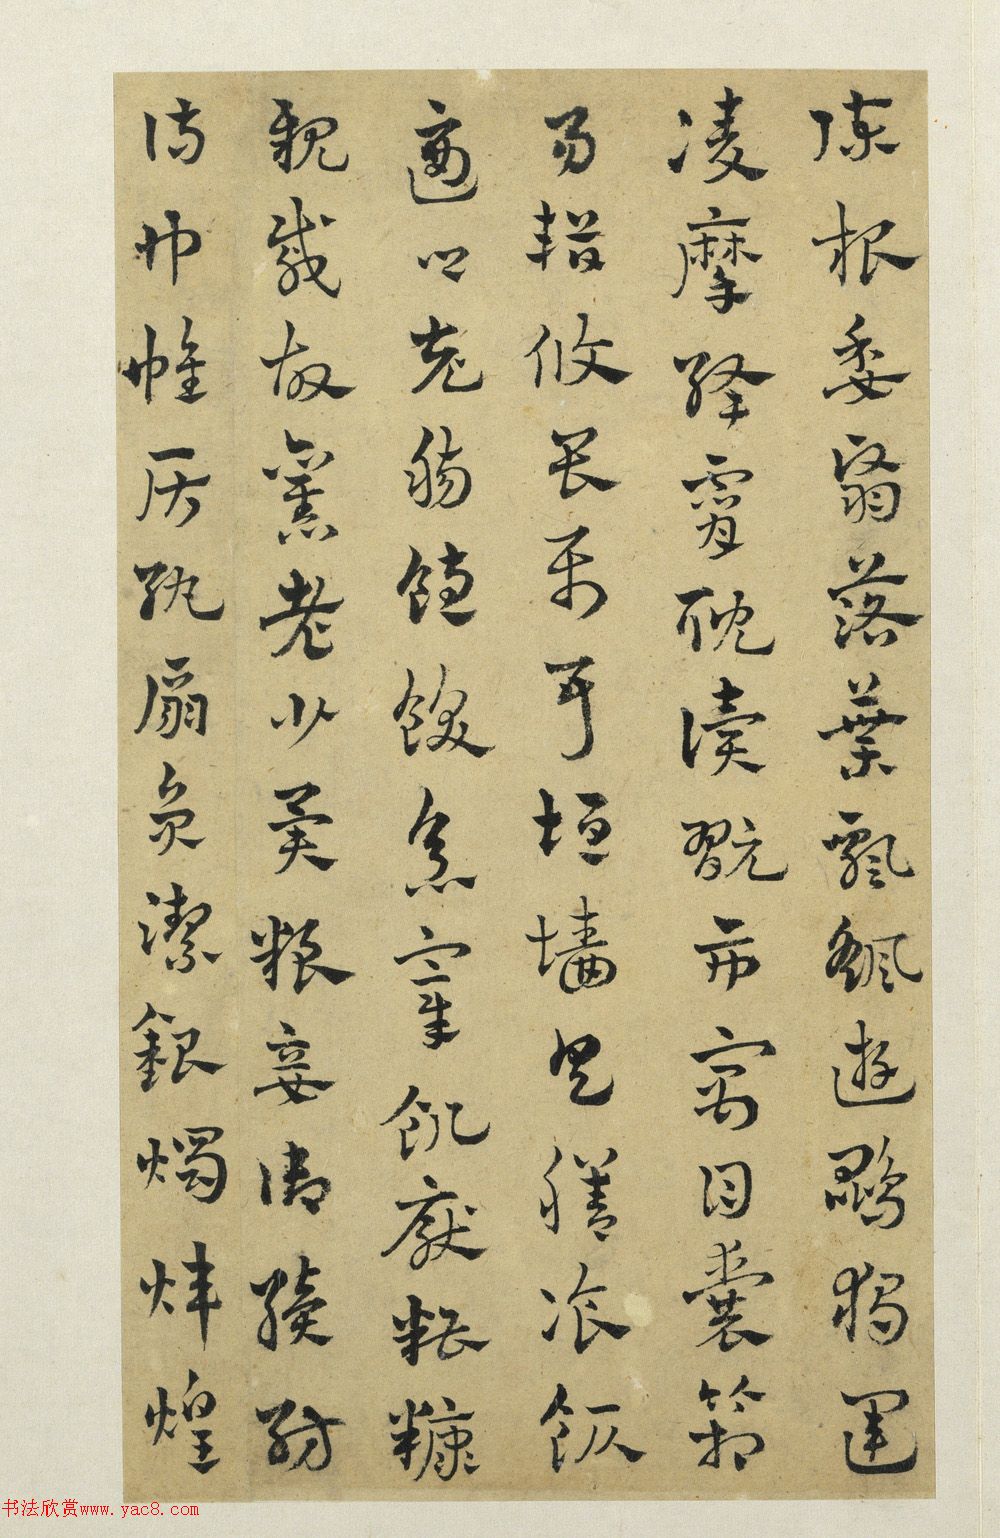 陳根委翳落葉飄飖遊鵾獨運
凌摩絳霄耽讀翫市寓目囊箱
易輶攸畏屬耳垣墻具膳飡飯
適口充腸飽飫烹宰飢厭糟糠
親戚故舊老少異粮妾御績紡
侍巾帷房紈扇圓潔銀燭煒煌
书法欣赏www.yac8.com